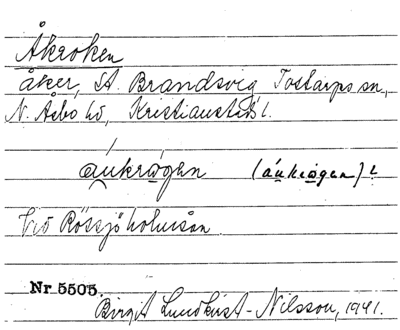 Åkroken
åker, St. Brandsvig Tostarps sn,
N. Åsbo hd, Kristianstads l.
áukrǫgen (áukrǫgen) L
Vid Rössjöholmsån
Nr 5505.
Birgit Lundkvist-Nilsson, 1941.